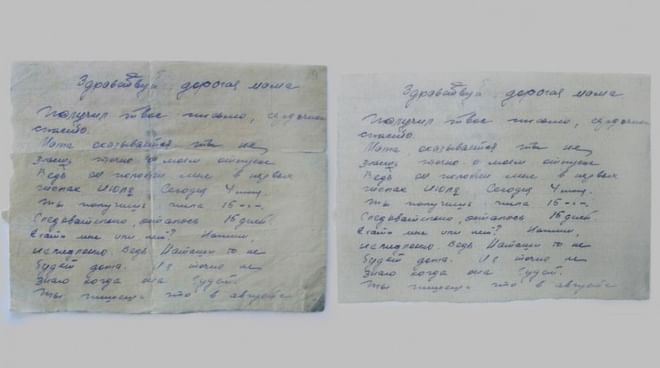 Здравствуй дорогая мама
Получил твое письмо, сердечное
спасибо.
Мама оказывается ты не
знаешь точно о моем отпуске
Ведь он положен мне в первых
числах Июля Сегодня 4 июн.
Ты получишь числа 15-
Следовательно, осталось 15 дней.
Ехать мне или нет? Напиши,
немедленно. Ведь Наташи то не
будет дома. Я точно не
знаю когда она будет.
Ты пишешь что в августе
Здравствуй дорогая мама
Получил твое письмо, сердечное
спасибо.
Мама оказывается ты не
знаешь точно о моем отпуске
Ведь он положен мне в первых
числах Июля Сегодня 4 июн.
Ты получишь числа 15-
Следовательно, осталось 15 дней.
Ехать мне или нет? Напиши,
немедленно. Ведь Наташи то не
будет дома. Я точно не
знаю когда она будет.
Ты пишешь что в августе